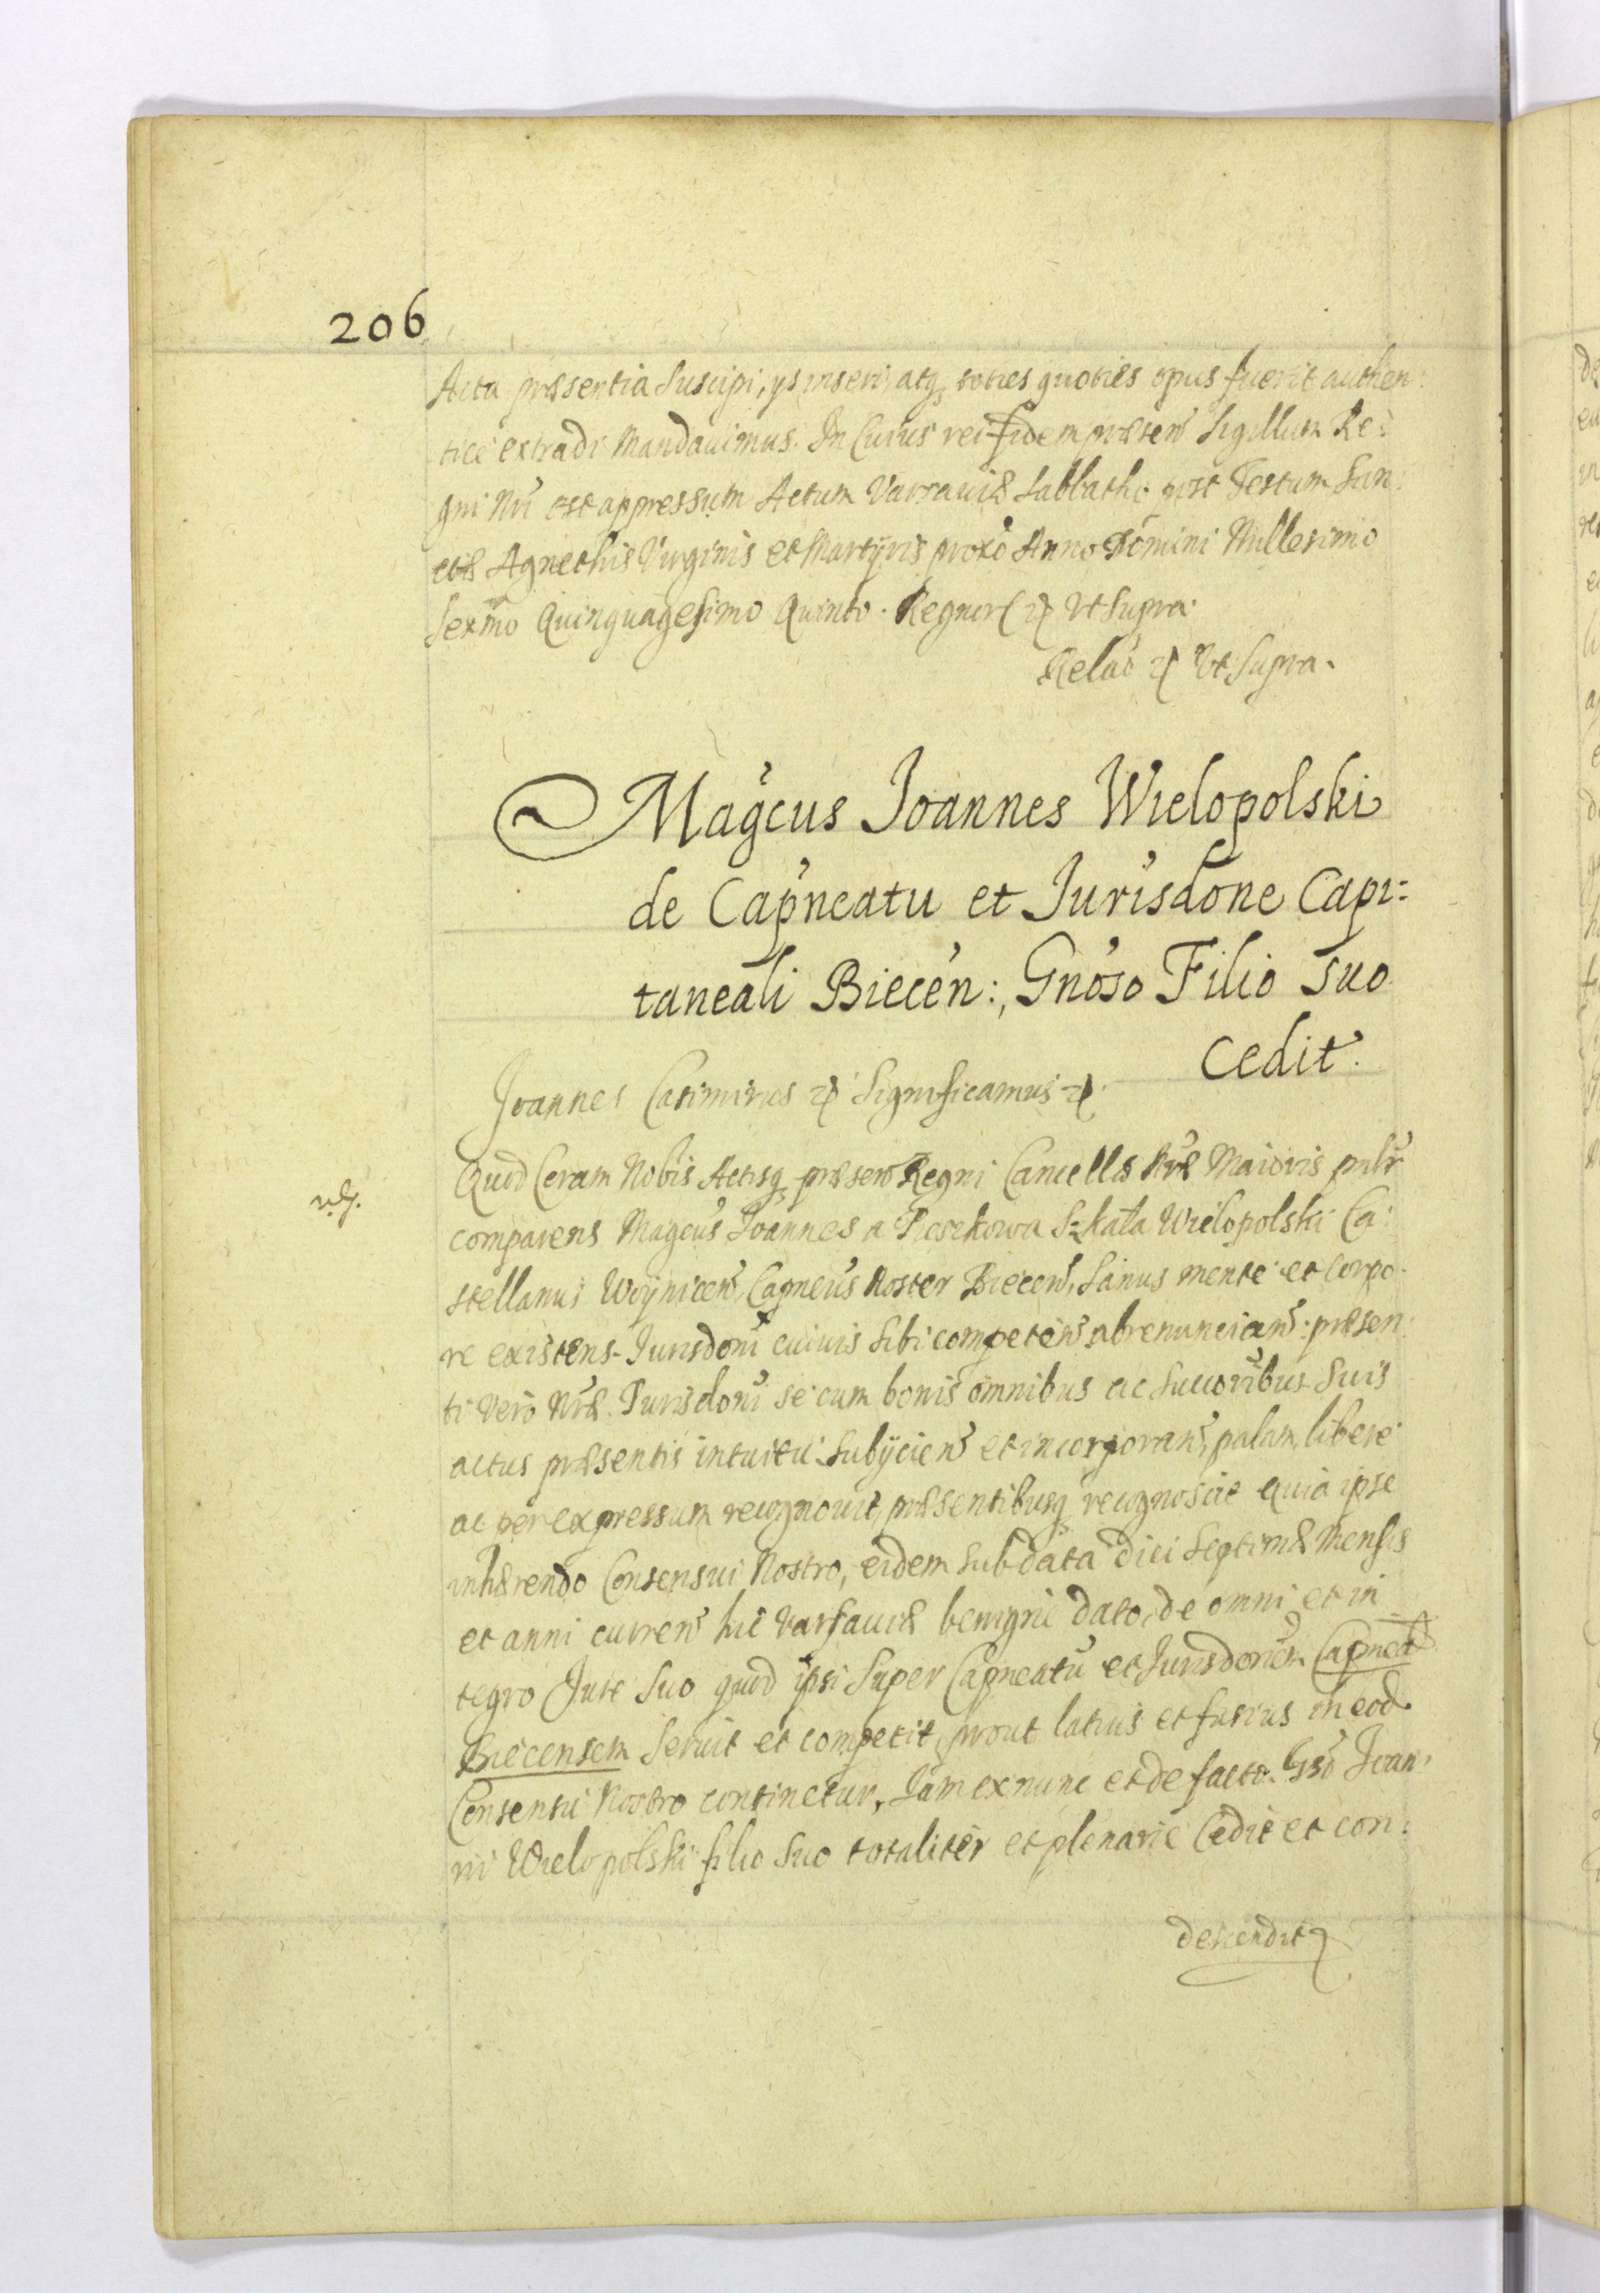 206
Acta præsentia Suscipi, ys inseri, atq₃ toties quoties opus fuerit authen:
tice extradi Mandauimus. In Cuius rei fidem præsen̄ Sigillum Re:
gni Nr̄i est appressum Actum Varsauiæ Sabbatho post Festum San:
ctæ Agnethis Virginis et Martyris proxō Anno Domini Millesimo
Sexm̄o Quinquagesimo Quinto. Regnor̄ &c Vt Supra.
Relaō &c Vt Supra.
Mag̃cus Joannes Wielopolski
de Cap̃neatu et Jurisd̃one Capi:
taneali Biecen̄:, Gnõso Filio suo
Cedit.
Joannes Casimirus &c Significamus &c
Quod Coram Nobis Actisq₃ præsen̄ Regni Cancellæ Nr̄æ Maioris pnl̄r
comparens Magcus̄ Joannes a Pieszkowa Skała Wielopolski Ca:
stellanus Woynicen̄, Capneus̄ Noster Biecen̄, Sanus mente et corpo:
re existens Jurisdoni̅ cuiuis Sibi competen̄ abrenuncian̄: præsen:
ti vero Nr̄æ Jurisdoni̅ se cum bonis omnibus ac Succoribus̄ Suis
actus præsentis intuitu Subijcien̄ et incorporan̄, palam, libere
ac per expressum recognouit, præsentibusq₃ recognoscit Quia ipse
inhærendo Consensui Nostro, eidem sub data diei Septimæ Mensis
et anni curren̄ hic Varsauiæ benigne dato, de omni et in
tegro Jure Suo quod ipsi Super Capneatū et Jurisdonem̄ Capneat̄
Biecensem Seruit et competit, prout latius et fusius in eod̄
Consensu Nostro continetur, Jam ex nunc et de facto Gsō Joan:
ni Wielopolski filio Suo totaliter et plenarie Cedit et con:
descendit